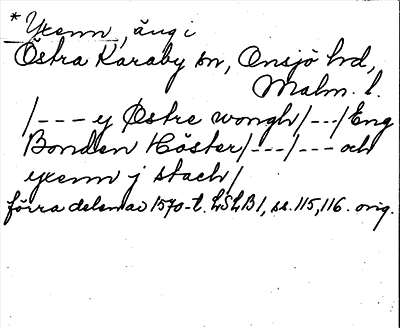 * Yxenn, äng i
Östra Karaby sn, Onsjö hd,
Malm. l.
/--- y Østre wongh/---/Eng
Bonden Höster/---/--- och
yxenn j stach/
förra delen av 1570-t. LSLB 1, ss. 115, 116. orig.